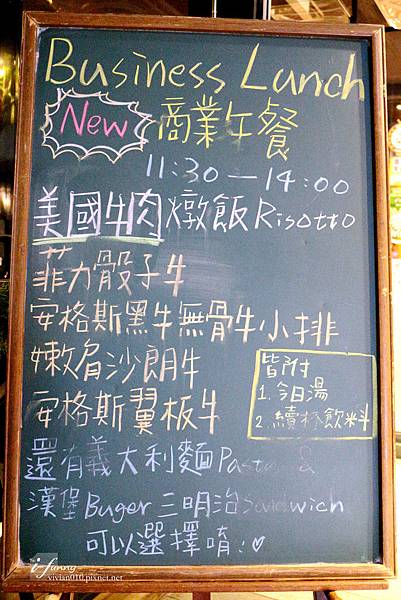 Business Lunch
New 商業午餐
11:30—14:00
美國牛肉燉飯Risotto
菲力骰子牛
安格斯黑牛無骨牛小排
嫩肩沙朗牛
安格斯翼板牛
皆附
1. 今日湯
2. 續杯飲料
還有義大利麵Pasta &
漢堡Buger 三明治Sandwich
可以選擇唷:♡
i·fanny
vivian010.pixnet.net